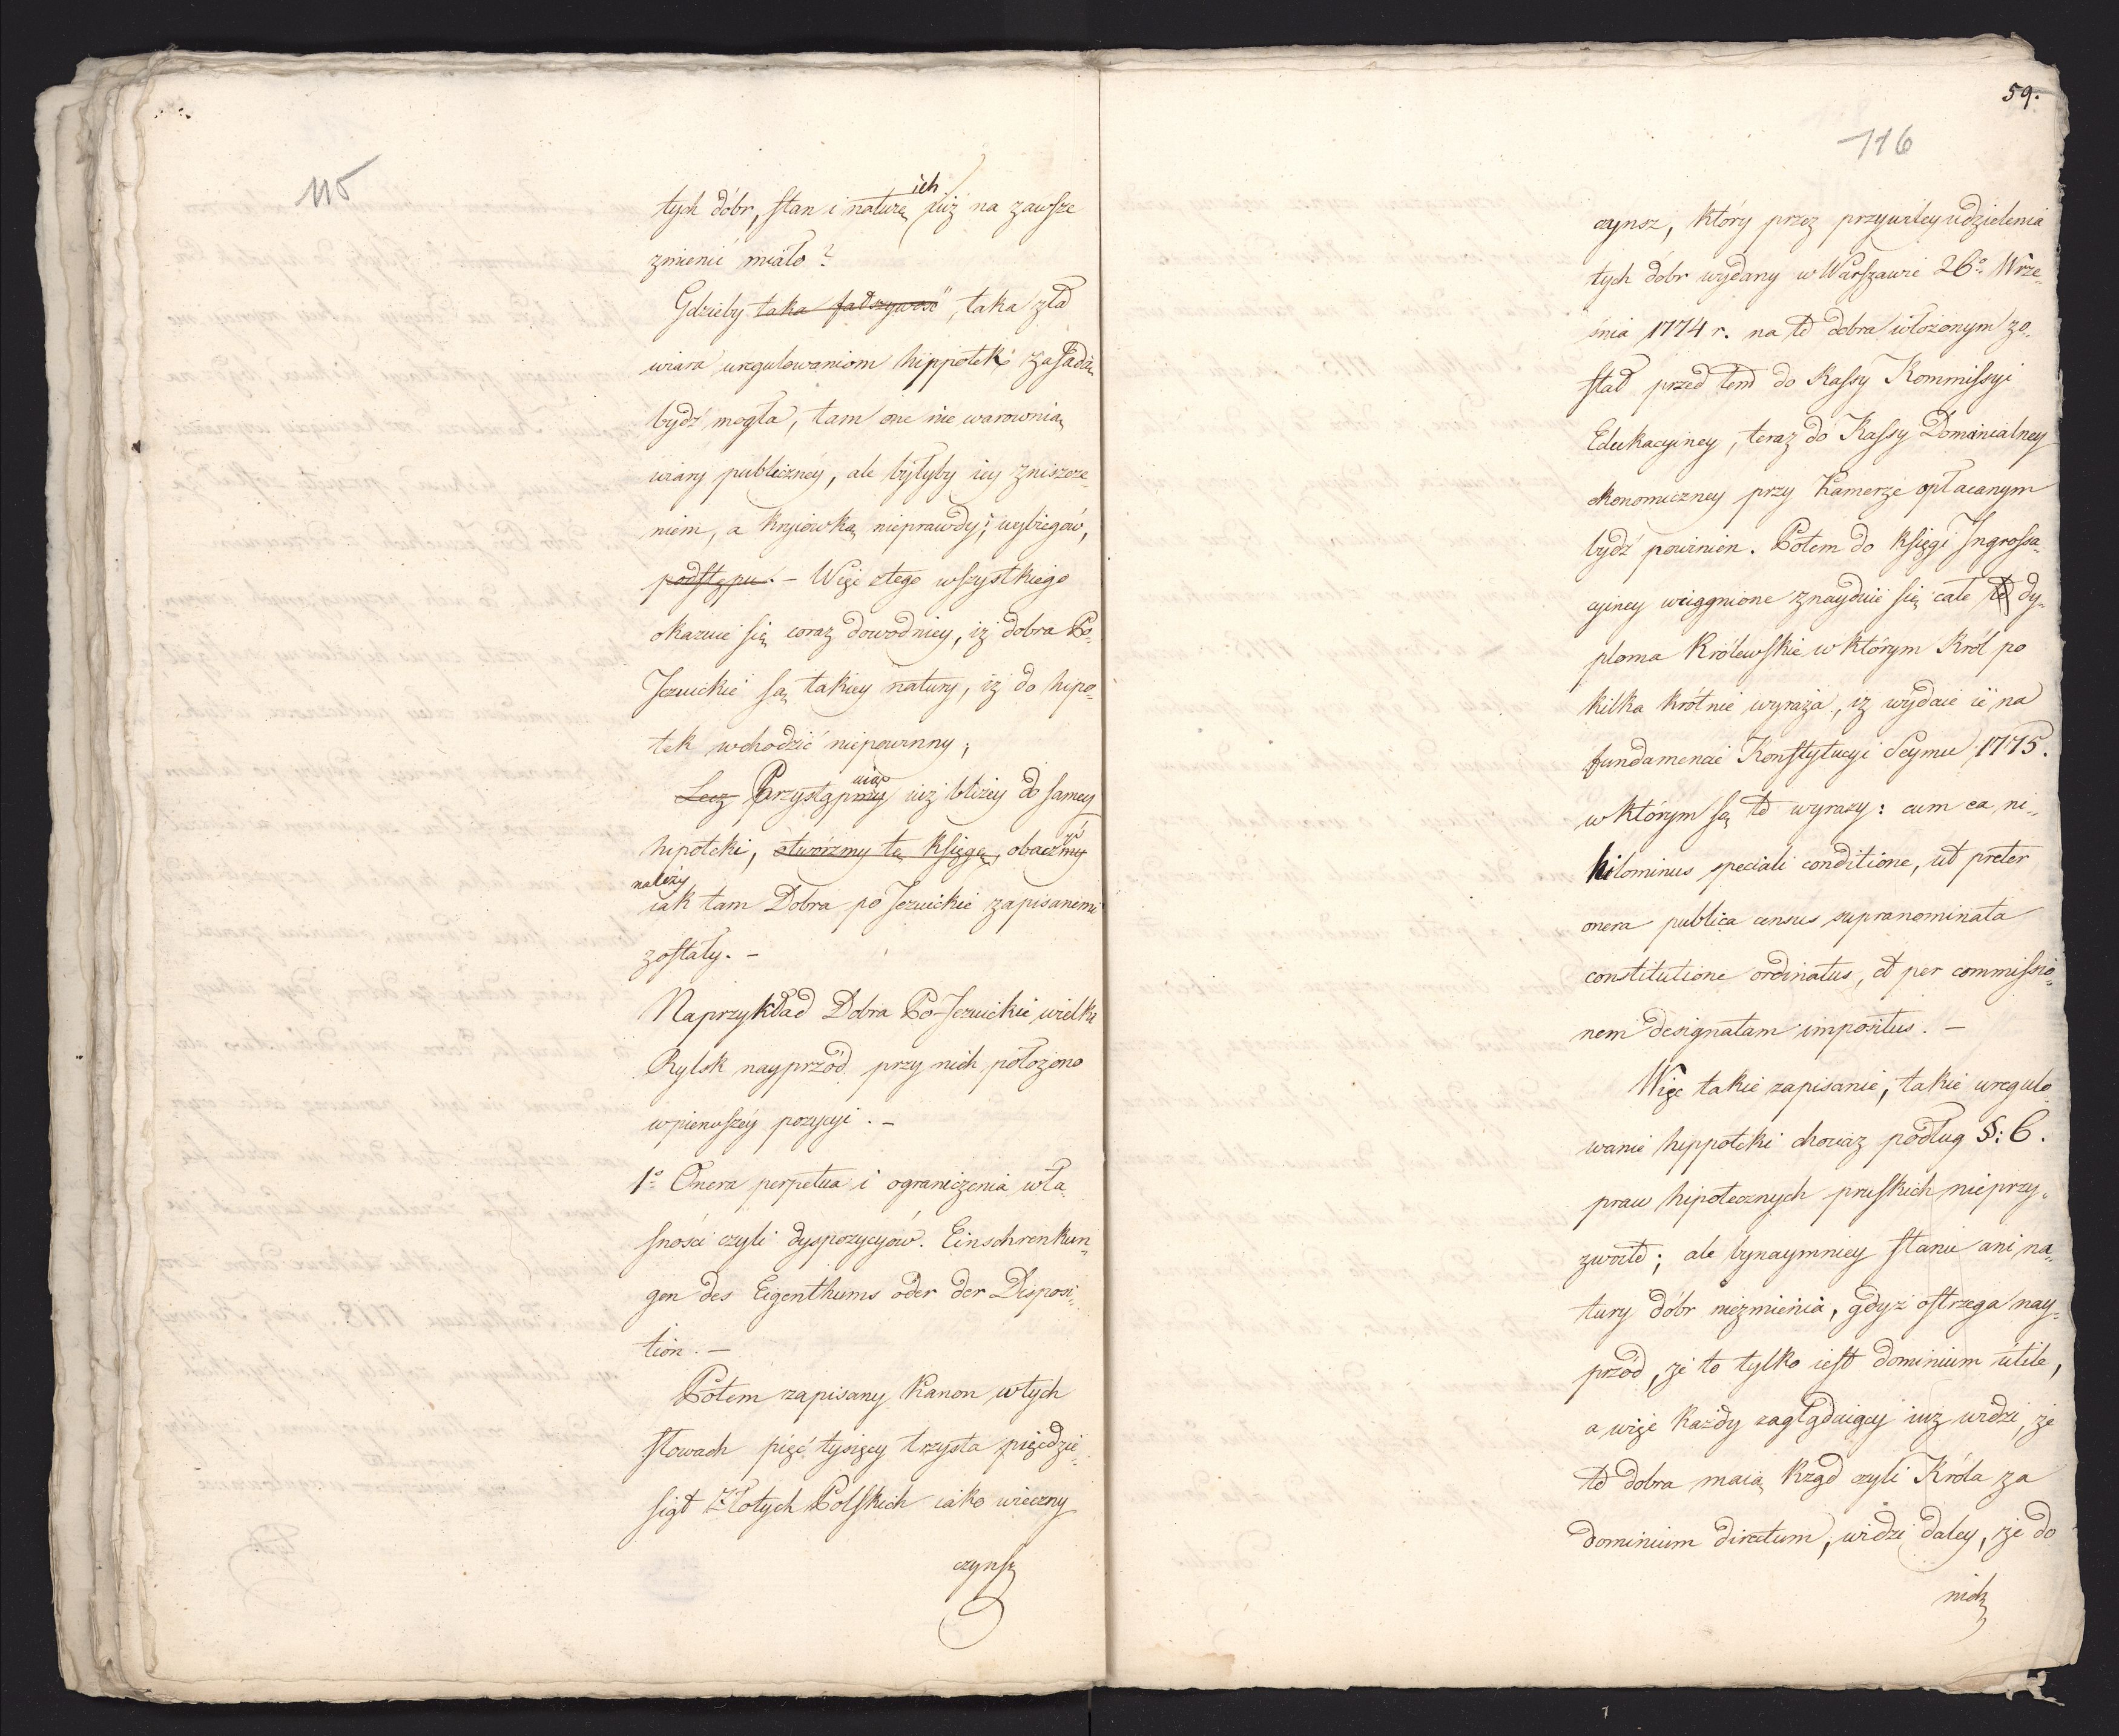 115
ich
tych dóbr, stan i naturę iuż na zawsze
zmienić miało?
Gdzieby taka fałszywość, taka zła
wiara uregulowaniom hippoteki zasadą
bydź mogła, tam one nie warownią
wiary publiczney, ale byłyby iey zniszcze„
niem, a kryiówką nieprawdy, i wybiegów,
podstępu. – Więc z tego wszystkiego
okazuie się coraz dowodniey, iż dobra Po„
Jezuickie są takiey natury, iż do hipo„
tek wchodzić niepowinny;
Lecz Przystąpmy iuż bliżey do samey
hipoteki, otwórzmy tę księgę, obaczmy
należy
iak tam Dobra po Jezuickie zapisanemi
zostały. –
Naprzykład Dobra Po-Jezuickie wielki
Rylsk nayprzód przy nich położono
w pierwszéy pozycyi. –
1º Onera perpetua i ograniczenia wła„
sności czyli dyspozycyów. Einschrenkun„
gen des Eigenthums oder der Disposi„
tion. –
Potem zapisany Kanon w tych
słowach pięć tysięcy trzysta pięcdzie„
siąt Złotych Polskich iako wieczny
czynsz
59.
116
czynsz, który przez przywiley udzielenia
tych dóbr wydany w Warszawie 26º Wrze„
śnia 1774 r. na te dobra włożonym zo„
stał przed tem do Kassy Kommissyi
Edukacyiney, teraz do Kassy Domanialney
ekonomiczney przy Kamerze opłacanym
bydź powinien. Potem do księgi Ingrossa„
cyiney wciągnione znayduie się całe te dy„
ploma Królewskie w którym Król po
kilka krótnie wyraża, iż wydaie ie na
fundamencie Konstytucyi Seymu 1775.
w którym są te wyrazy: cum ea, ni„
hilominus speciali conditione, ut preter
onera publica census supranominata
constitutione ordinatus, et per commissio„
nem designatam impositus. –
Więc takie zapisanie, takie uregulo„
wanie hippoteki chociaż podług §: 6.
praw hipotecznych pruskich nieprzy„
zwoite; ale bynaymniey stanu ani na„
tury dóbr niezmienia, gdyż ostrzega nay„
przód, że to tylko iest dominium utile,
a więc każdy zaglądaiący iuż widzi, że
te dobra maią Rząd czyli Króla za
dominium directum, widzi daley, że do
nich